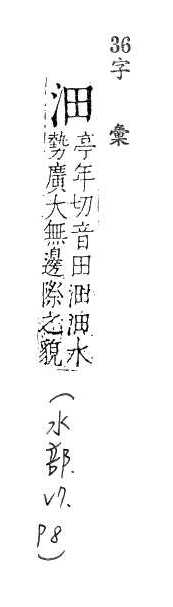 36字彙
沺
亭年切音田沺沺水
勢廣大無邊際之貌
(水部.
V7.
P8)